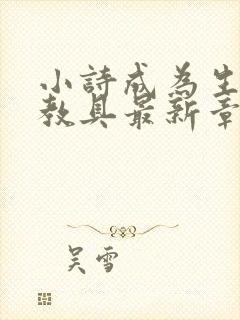 小詩成為生
教具最新章
吴雪